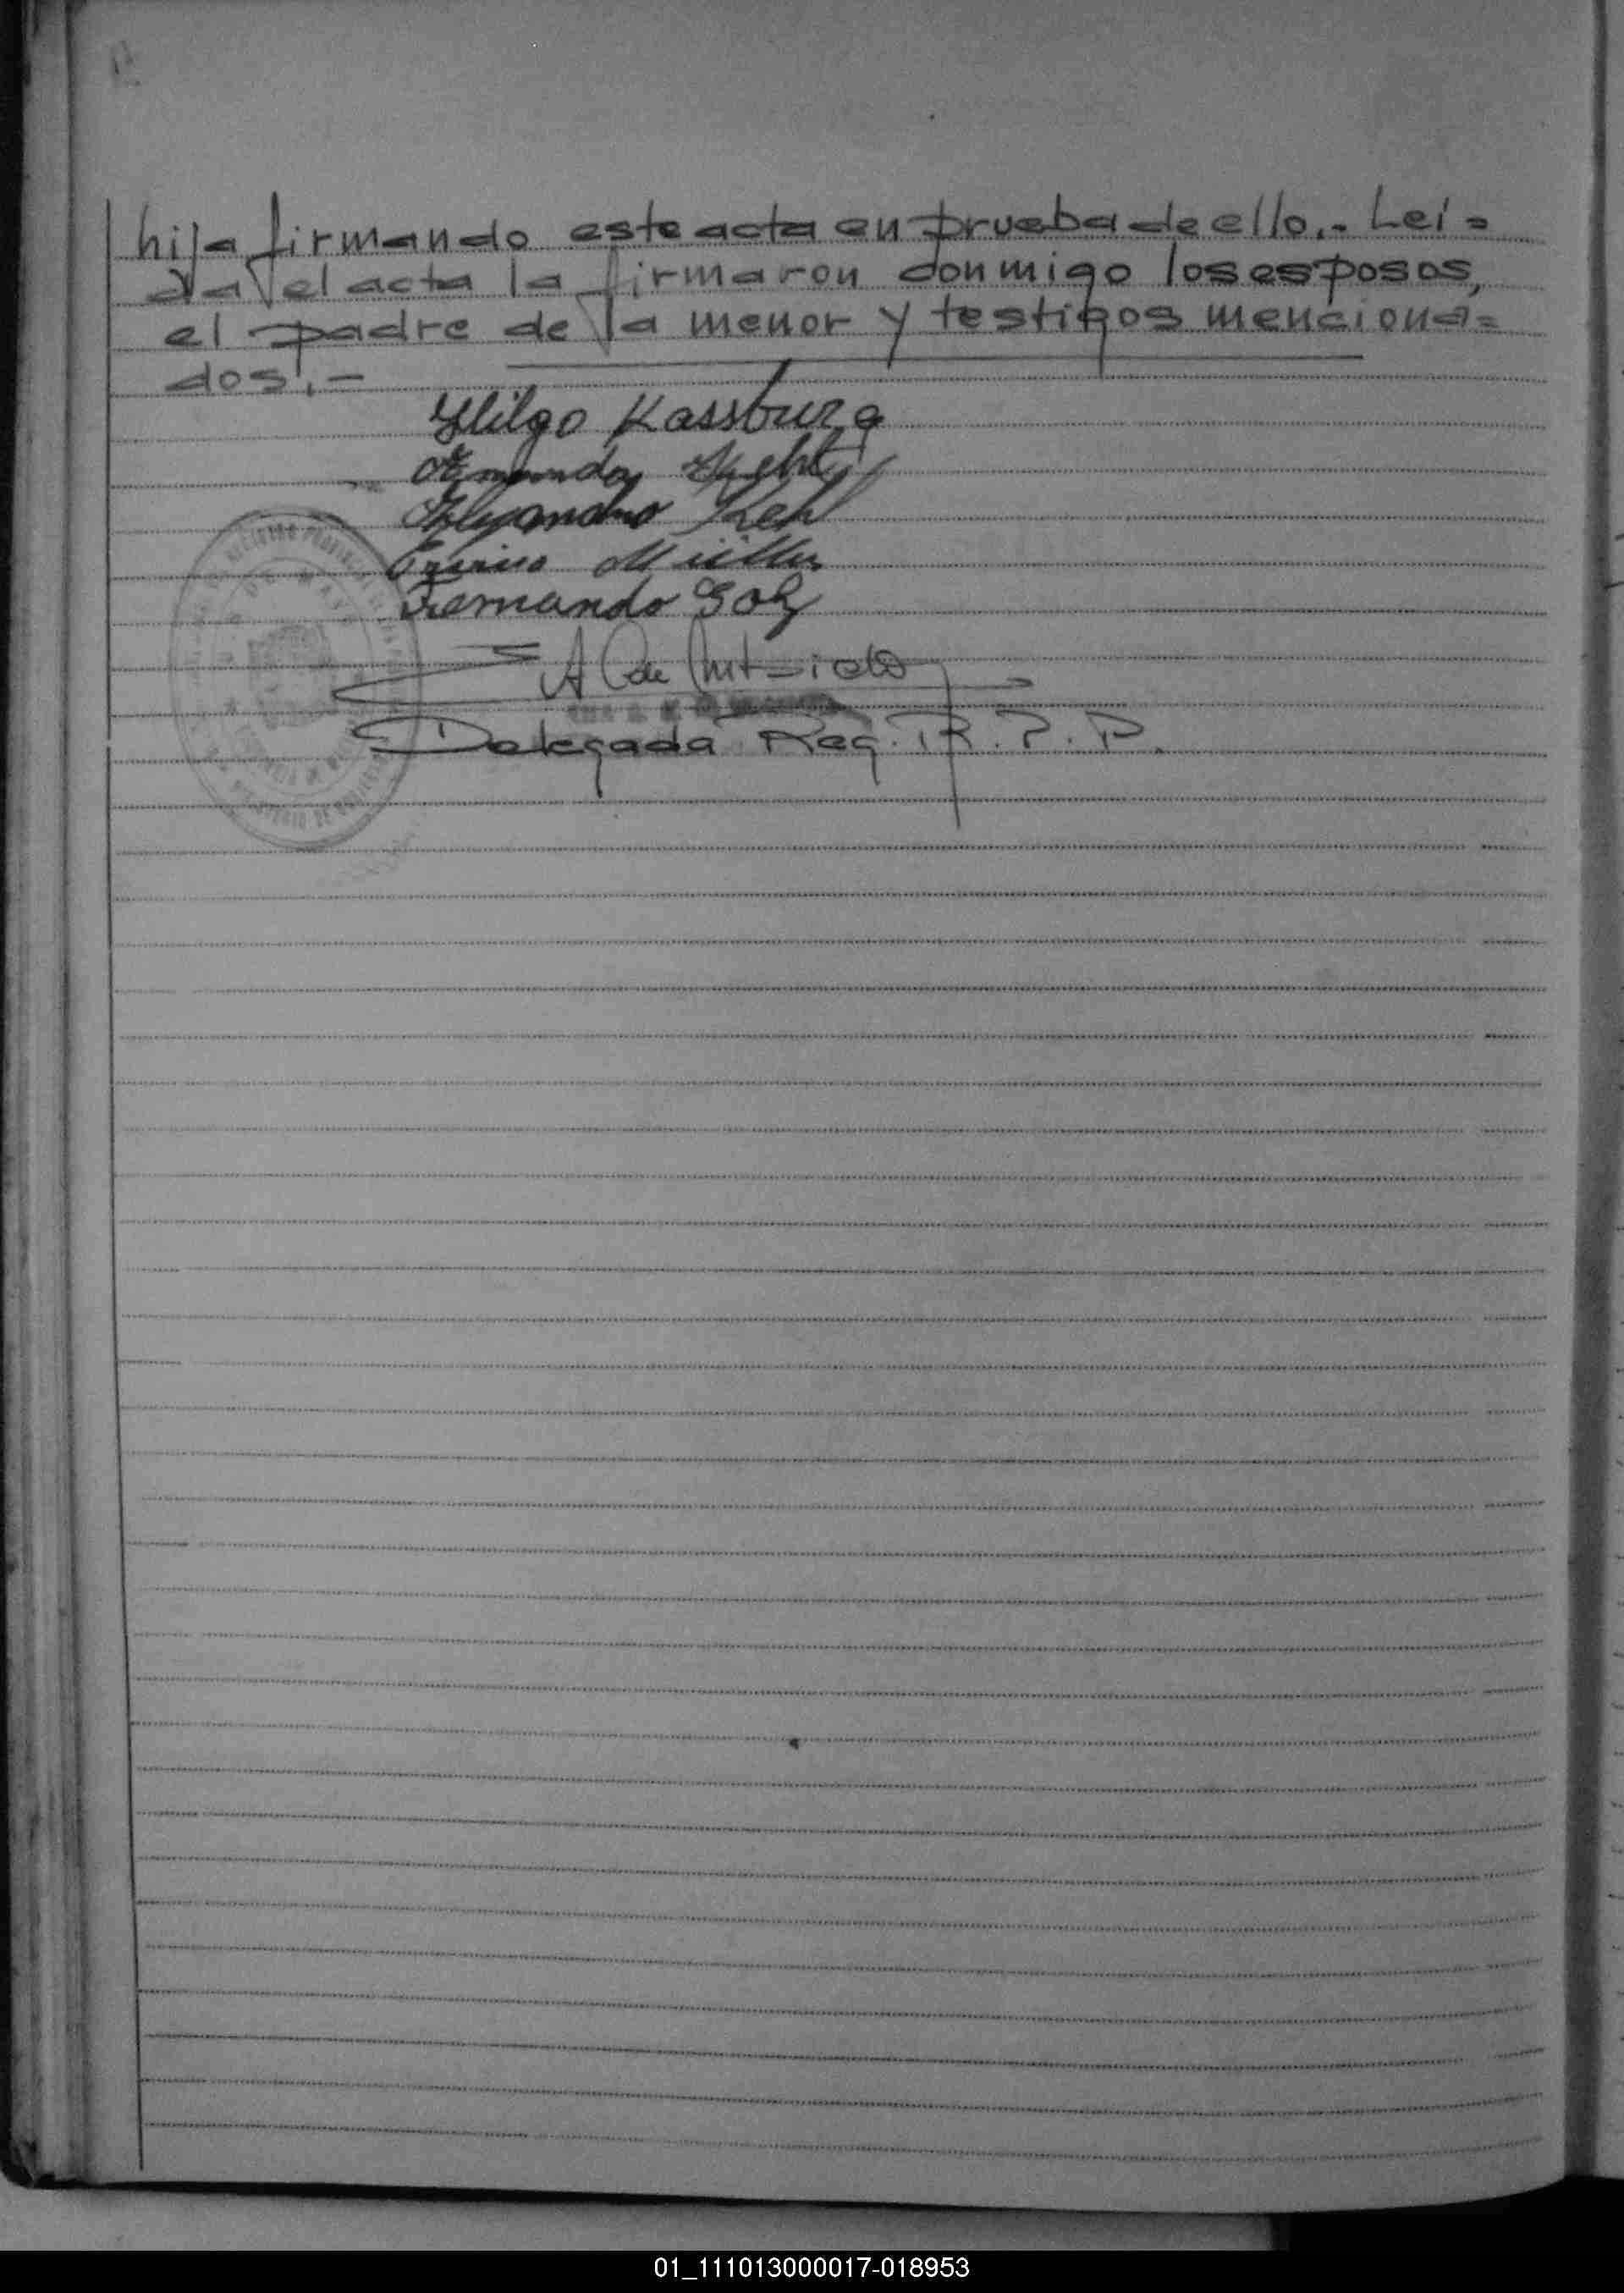 hija firmando este acta en prueba de ello.- Leí=
da el acta la firmaron conmigo los esposos,
el padre de la menor y testigos menciona=
dos.-
Hilgo Kassburg
Alejandro Kehl
Müller
Fernando
A de
Delegada Reg. R. P. P.
01_111013000017-018953